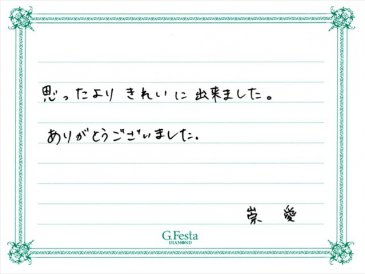 思ったより きれいに 出来ました。
ありがとうございました。
崇 愛
G.Festa
DIAMOND